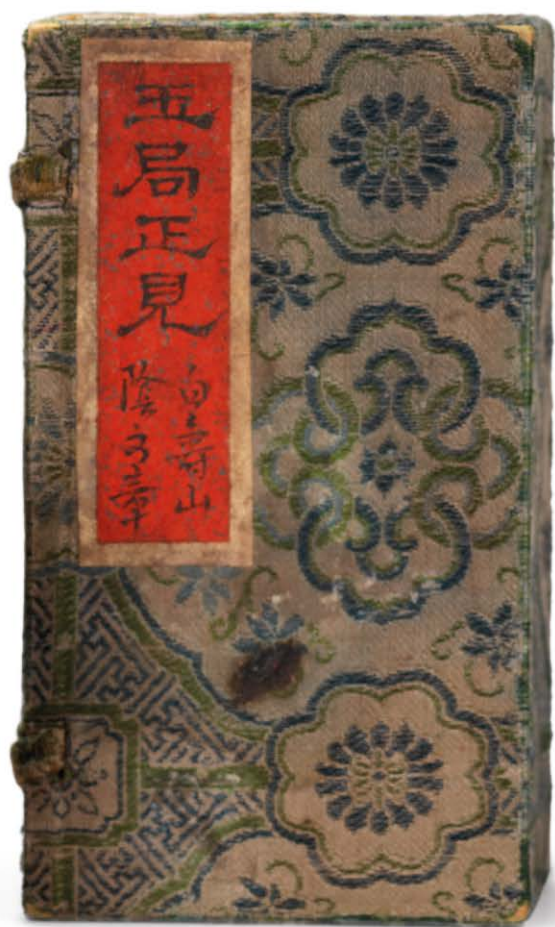 玉局正見
白壽山
陰文章